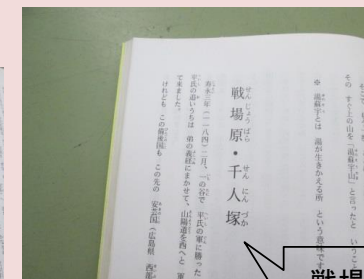 その すぐ上の山を「湯蘇宇山」と言ったと いうこ
※ 湯蘇宇とは 湯が生きかえる所 という意味です
戦場原・千人塚
せんじょうばら せんにんづか
寿永三年(一一八四)二月、一の谷で 平氏の軍に勝った
平氏の追いうちは 弟の義経にまかせて、山陽道を西へと 軍
て来ました。
けれども、この備後国も この先の 安芸国(広島県 西部
戦場